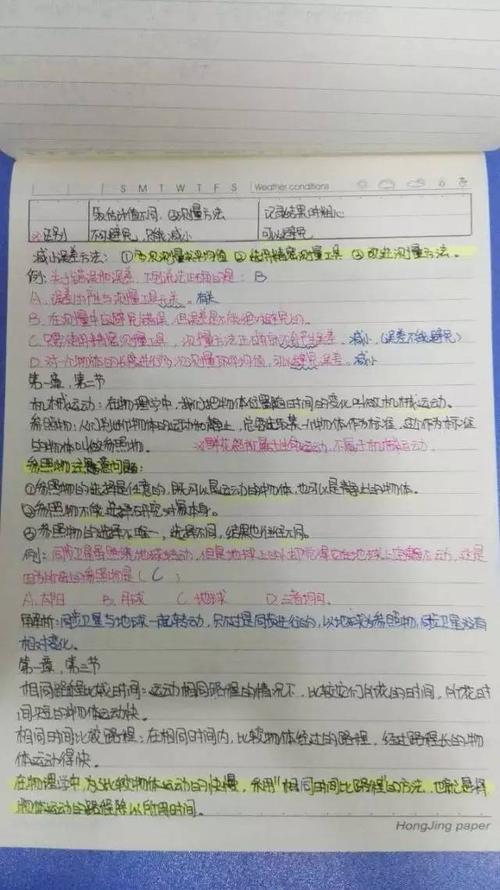 S M T W T F S Weather conditions
取估计值不同，③测量方法 记录结果时粗心
※区别 不可避免，只能减小 可以避免
减小误差方法：①多次测量求平均值 ②使用精密测量工具 ③改进测量方法。
例：关于错误和误差，下列说法正确的是：B
A. 误差的产生与测量工具无关。有关
B. 在测量中应避免错误，但误差是不可能绝对避免的。
C. 只要使用精密测量工具，测量方法正确，就不会产生误差。减小（误差不能避免）
D. 对一个物体的长度进行多次测量取平均值，可以避免误差。减小
第一章，第二节
机械运动：在物理学中，我们把物体位置随时间的变化叫做机械运动。
参照物：人们判断物体的运动和静止，总要选取某一物体作为标准，这个作为标准
的物体叫做参照物。 ※鲜花怒放属于生命运动，不属于机械运动
参照物注意问题：
①参照物的选择是任意的，既可以是运动的物体，也可以是静止的物体。
②参照物不能选择研究对象本身。
③参照物的选择不唯一，选择不同，结果也往往不同。
例：同步卫星虽然绕地球转动，但是地球上的人却觉得它在地球上空静止不动，这是
因为所选的参照物是（C）
A. 太阳 B. 月球 C. 地球 D. 三者均可
解析：同步卫星与地球一起转动，只不过是同步进行的，以地球为参照物，同步卫星没有
相对变化。
第一章，第三节
相同路程比较时间：运动相同路程的情况下，比较它们所花的时间，所花时
间短的物体运动快。
相同时间比较路程：在相同时间内，比较物体经过的路程，经过路程长的物
体运动得快。
在物理学中，为了比较物体运动的快慢，采用“相同时间比路程”的方法，也就是将
物体运动的路程除以所用时间。
HongJing paper